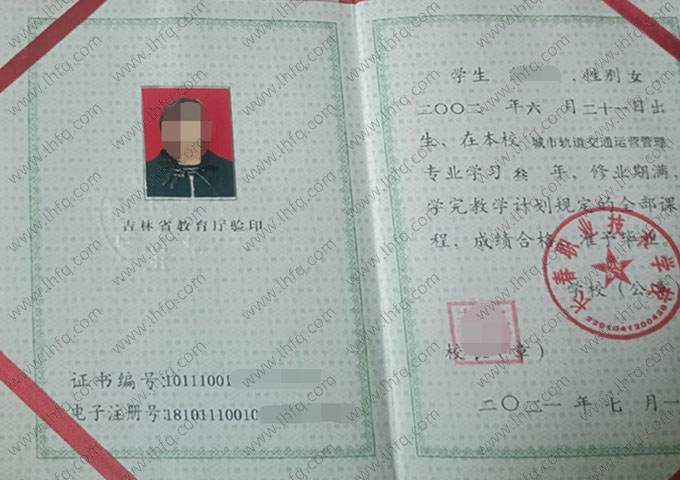 吉林省教育厅验印
证书编号:10111001
电子注册号:18101110010
学生 ,性别 女,
二〇〇二 年 六 月 二十一日出
生, 在本校 城市轨道交通运营管理
专业学习 叁 年, 修业期满,
学完教学计划规定的全部课
程, 成绩合格, 准予毕业
长春职业技术学校
学校(公章)
2201041200426
校长(章)
二〇二一年七月一
www.lhfq.com